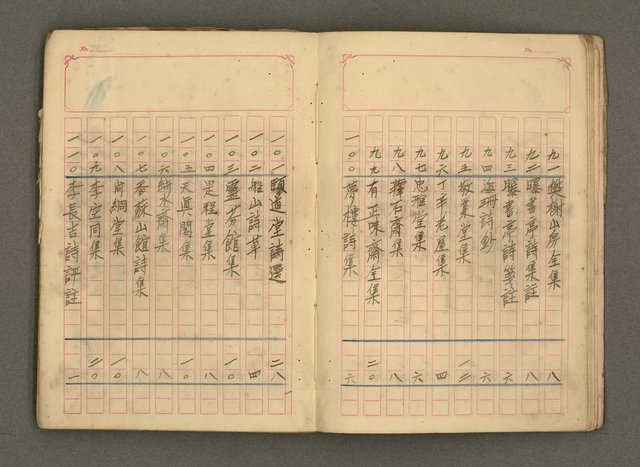 No.
九一樊榭山房全集 八
九二曝書亭詩集註 八
九三曝書亭詩箋註 六
九四海珊詩鈔 六
九五敬業堂集 一二
九六丁辛老屋集 四
九七忠雅堂集 六
九八擇石齋集 八
九九有正味齋全集 二〇
一〇〇夢樓詩集 六
No.
一〇一頤道堂詩選 二八
一〇二雅山詩草 四
一〇三靈芬館集 一〇
一〇四是程堂集 八
一〇五天真閣集 一〇
一〇六 水齋集 八
一〇七香蘇山館詩集 八
一〇八 綱堂集 一〇
一〇九李空同集 二〇
一一〇李長吉詩評註 一